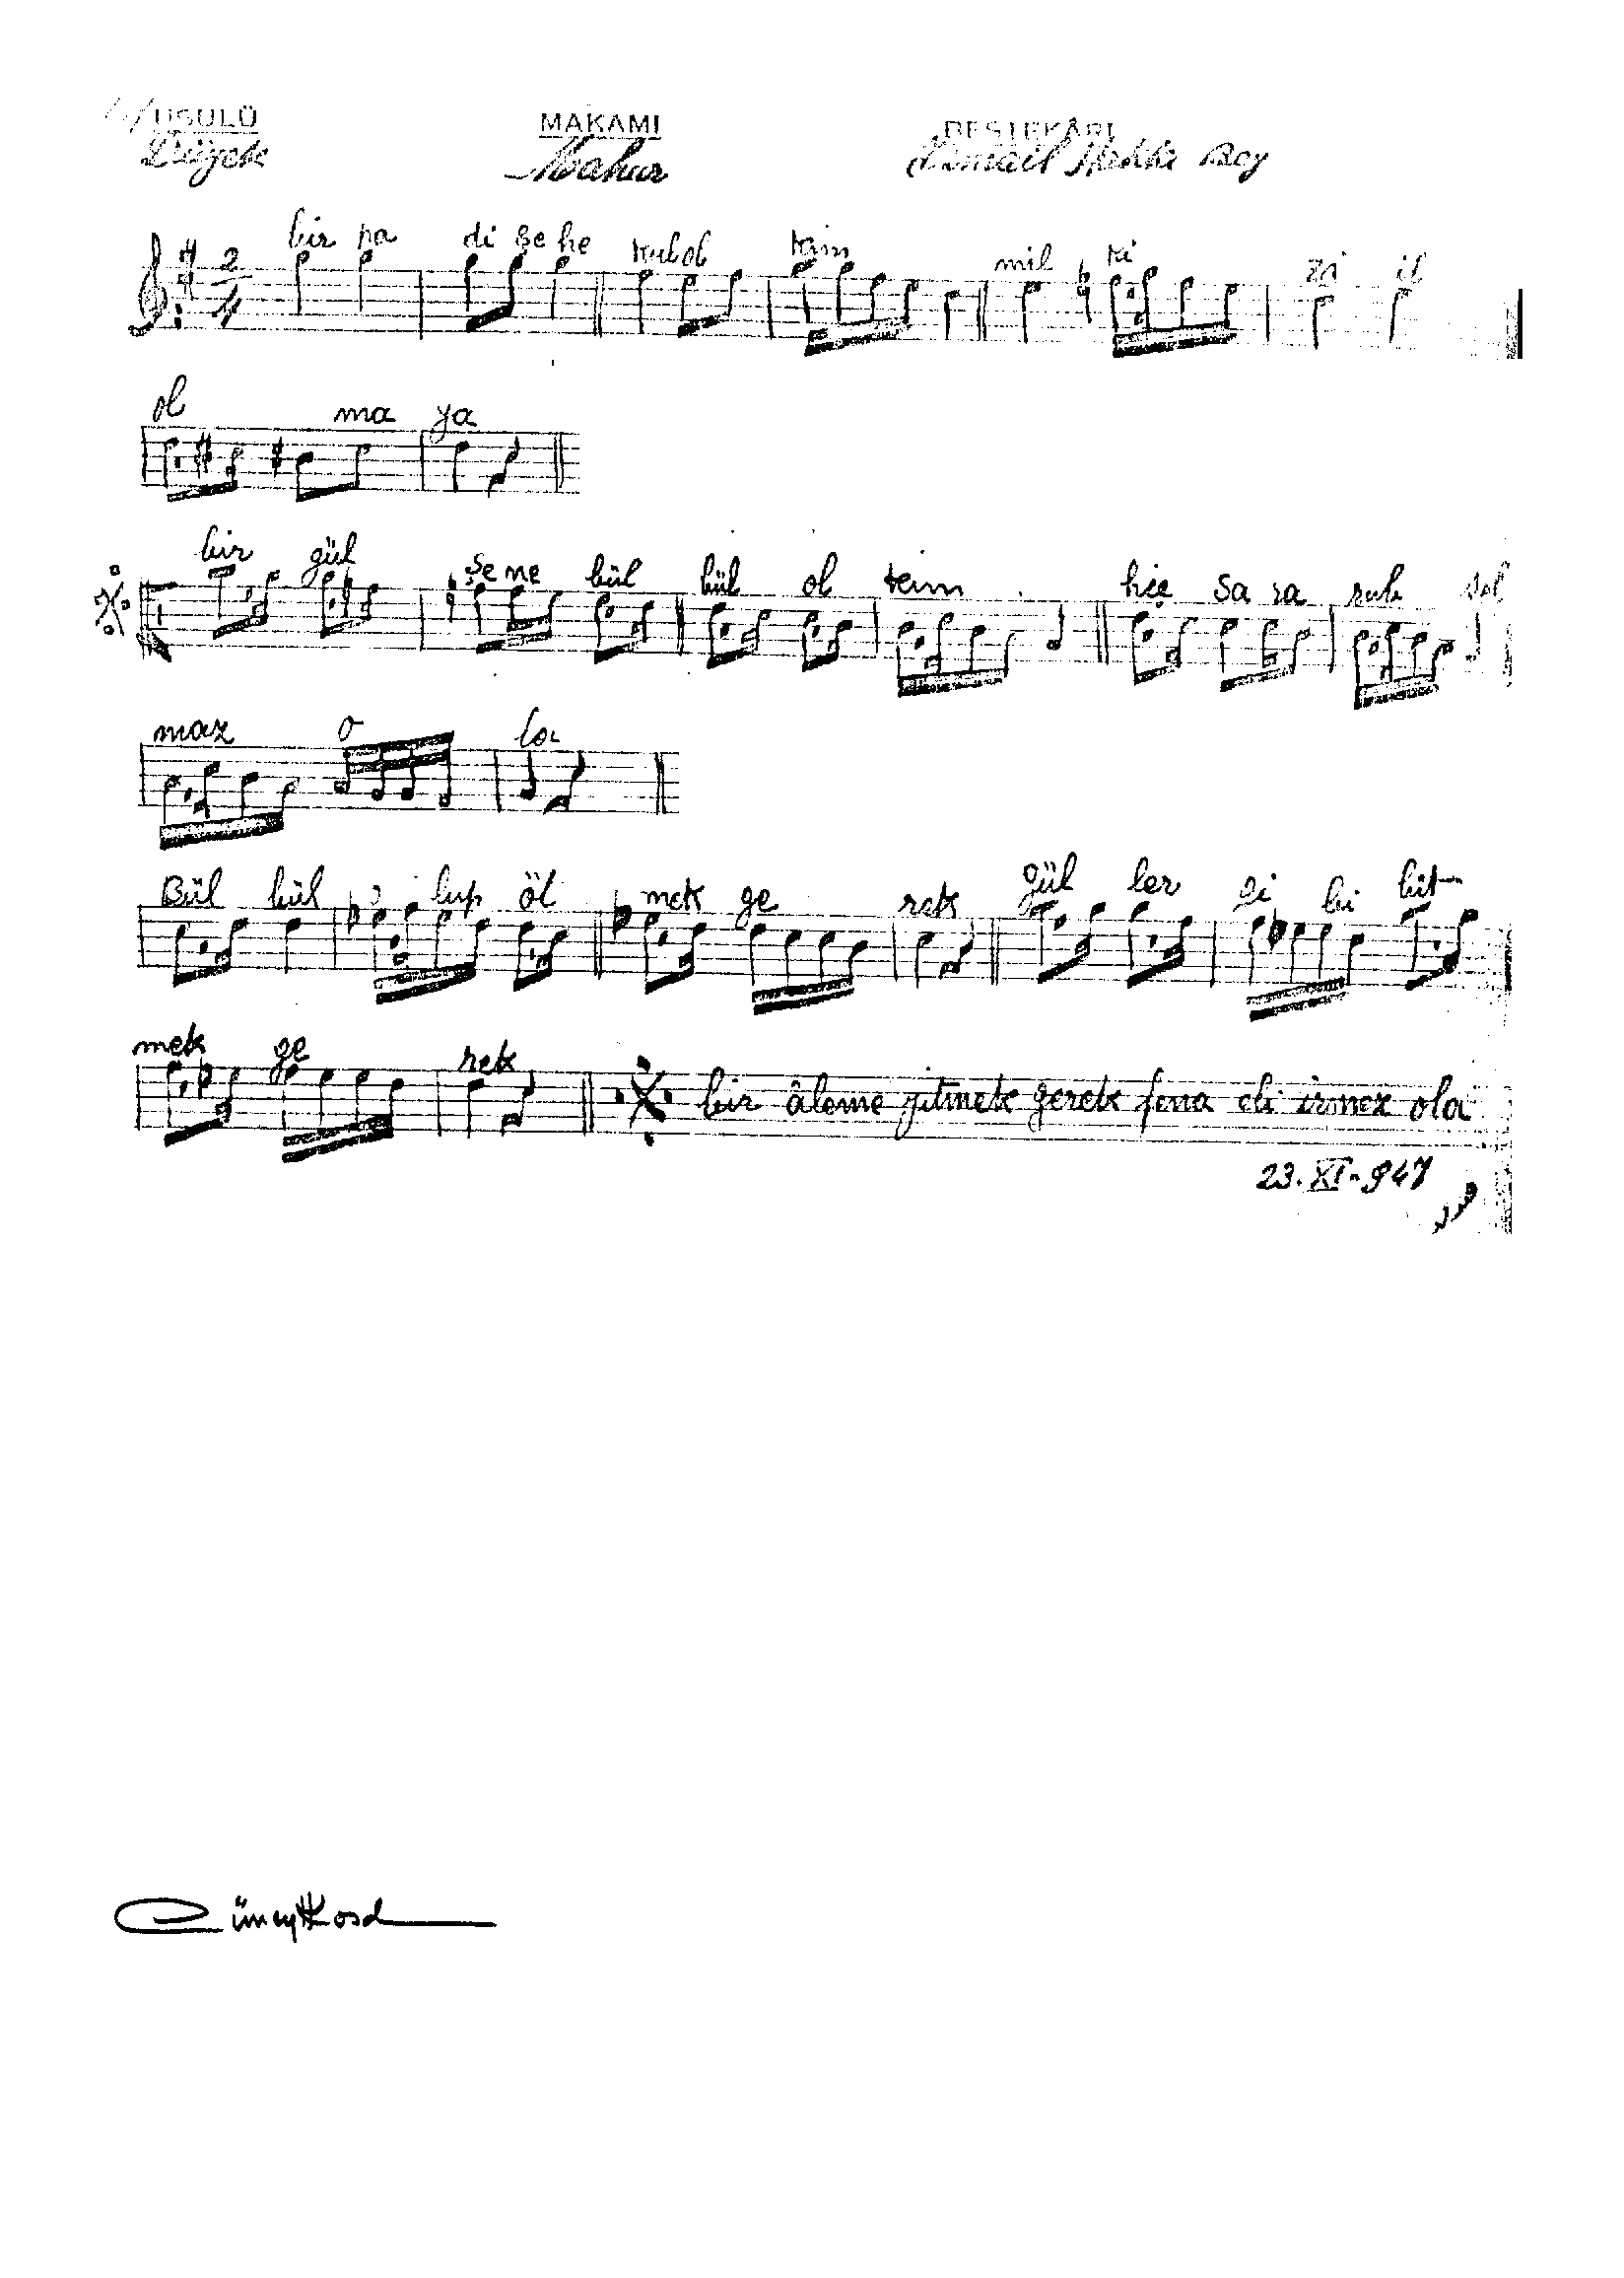 USULÜ MAKAMI BESTEKÂRI
Düyek Mahur İsmail Hakkı Bey
2/4
bir pa di şe he kul ol kim mil ki za il
ol ma ya
bir gül şe ne bül bül ol kim hiç sa ra rub sol
maz o la
Bül bül o lup öt mek ge rek gül ler gi bi bit
mek ge rek bir âleme gitmek gerek fena eli irmez ola
23.XI-947
Cüneyt Kosal